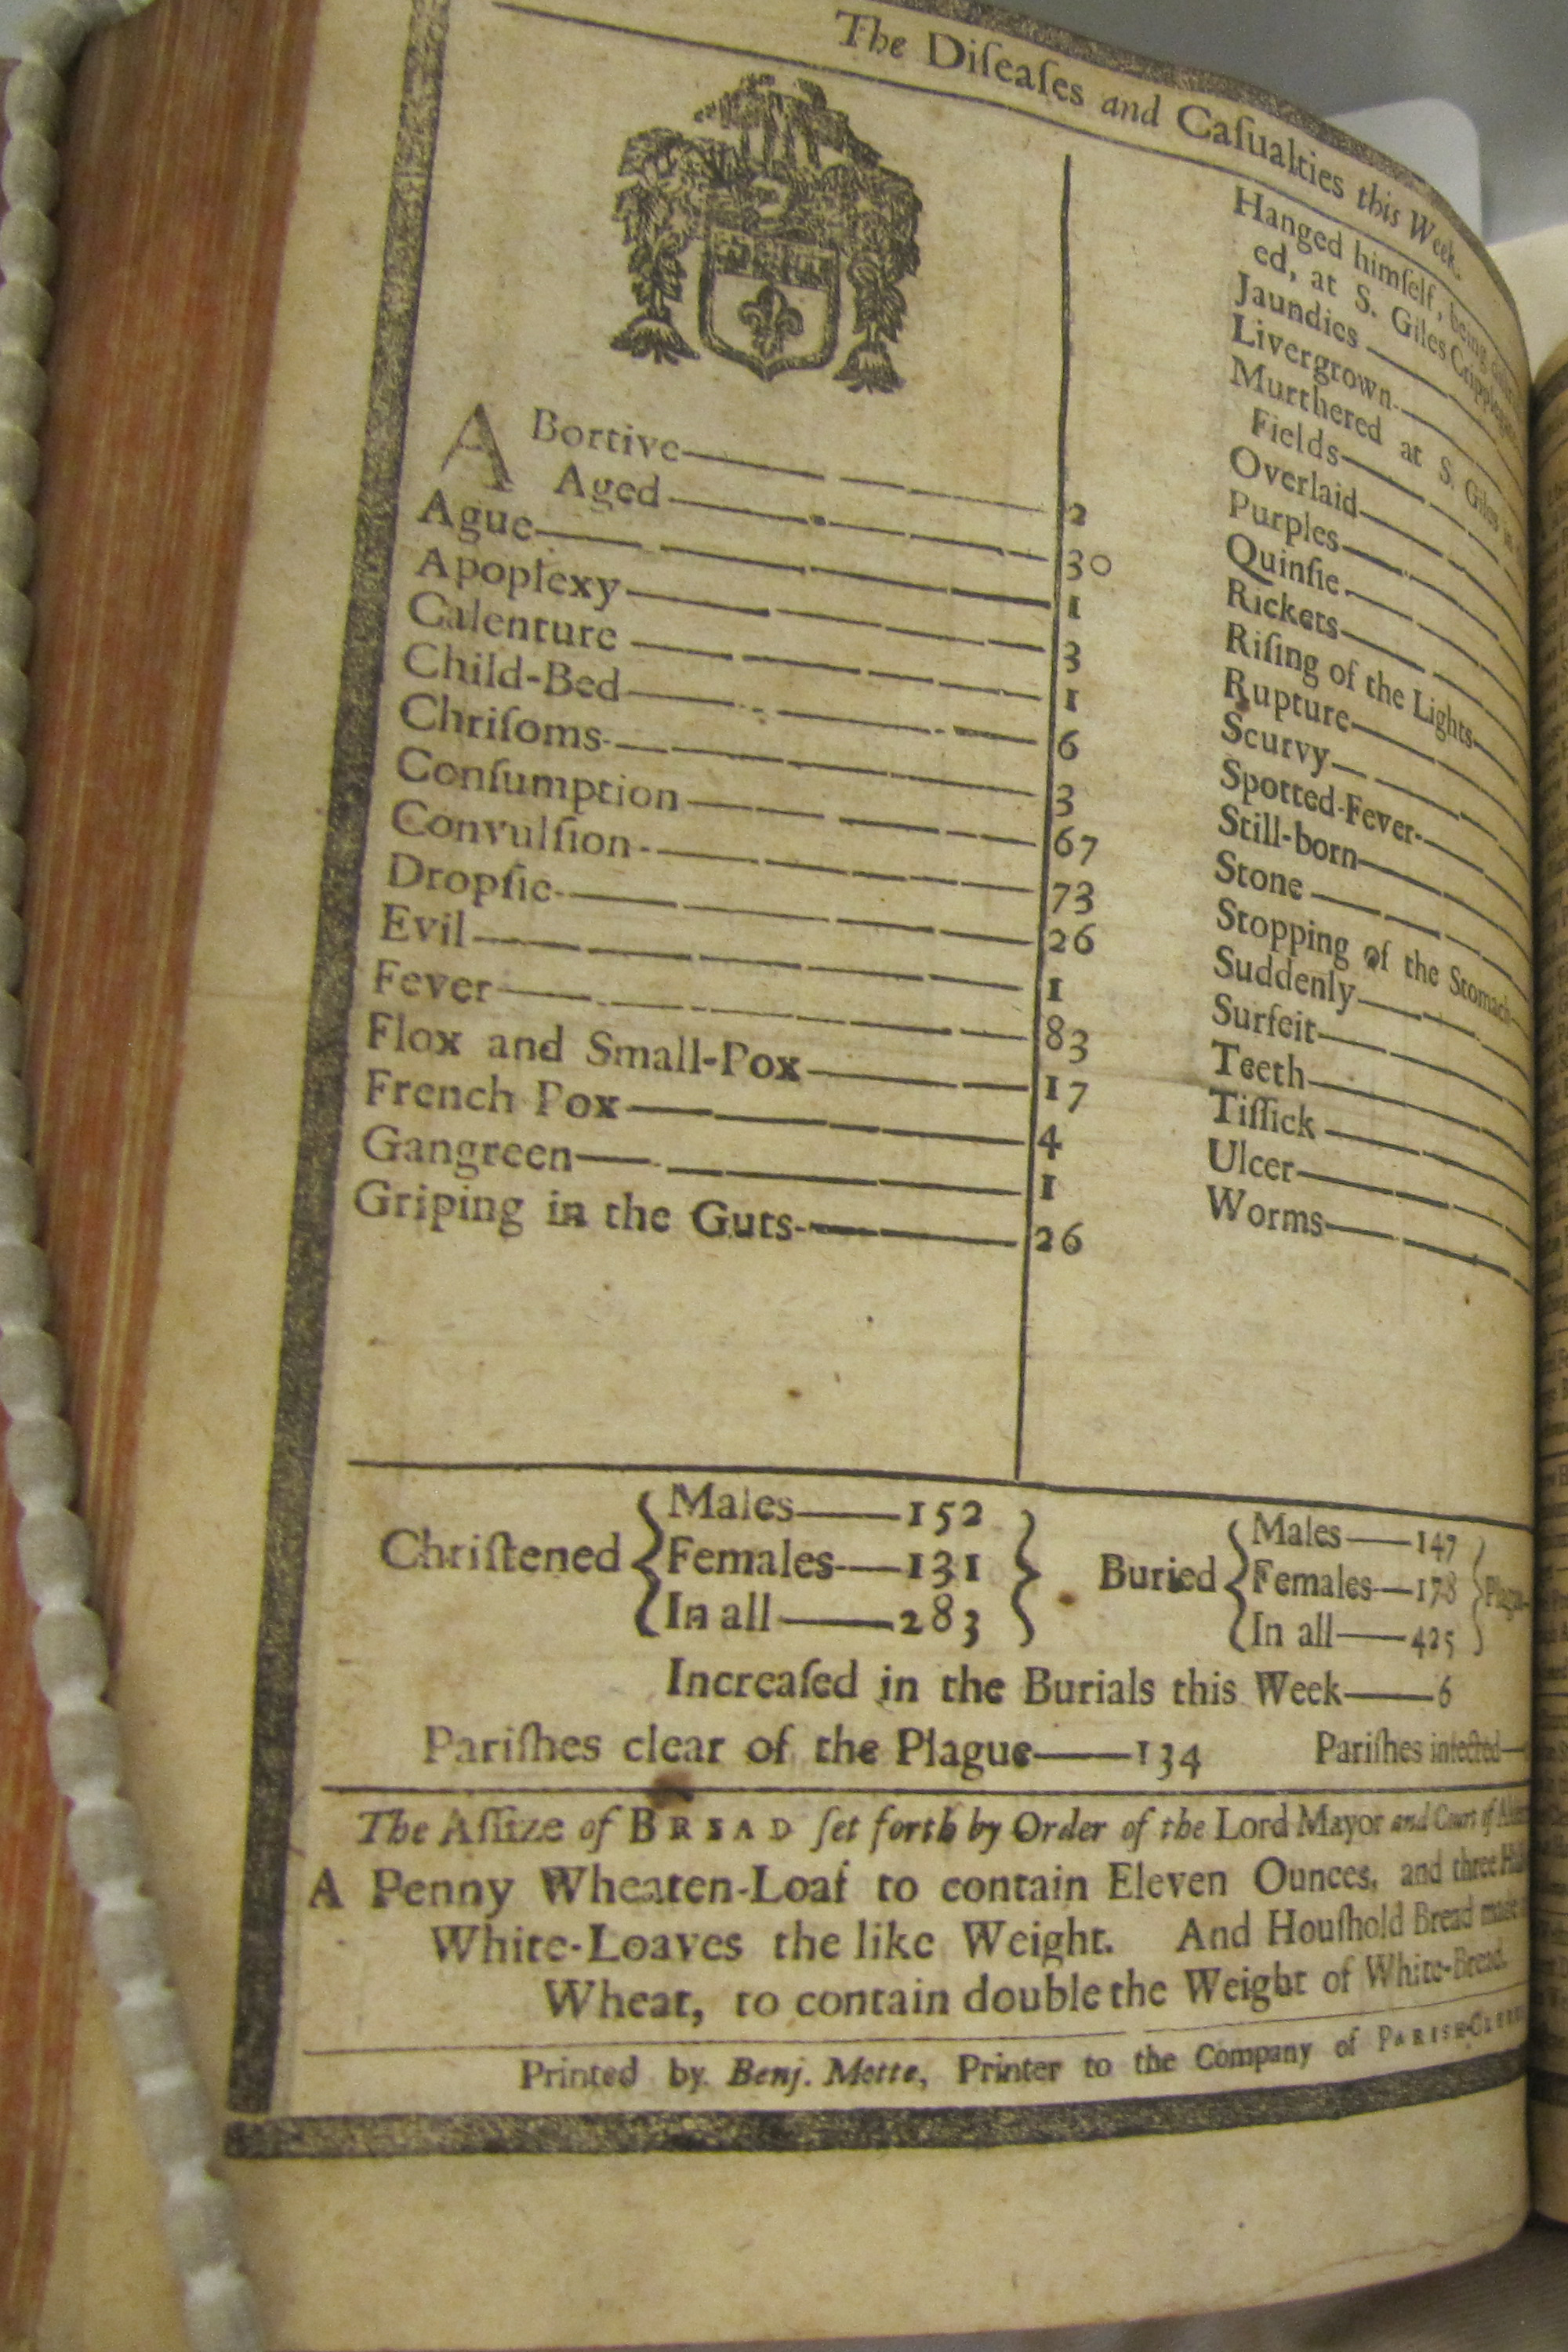 The Diſeaſes and Caſualties this Week.
ABortive 2
Aged 30
Ague 1
Apoplexy 3
Calenture 1
Child-Bed 6
Chriſoms 3
Conſumption 67
Convulſion 73
Dropſie 26
Evil 1
Fever 83
Flox and Small-Pox 17
French Pox 4
Gangreen 1
Griping in the Guts 26
Hanged himſelf, being
ed, at S. Giles Cripplegate
Jaundies
Livergrown
Murthered at S. Giles in
Fields
Overlaid
Purples
Quinſie
Rickets
Riſing of the Lights
Rupture
Scurvy
Spotted-Fever
Still-born
Stone
Stopping of the Stomach
Suddenly
Surfeit
Teeth
Tiſſick
Ulcer
Worms
Chriſtened { Males 152 Females 131 In all 283 }
Buried { Males 147 Females 178 In all 425 }
Increaſed in the Burials this Week 6
Pariſhes clear of the Plague 134 Pariſhes infected
The Aſſize of BREAD ſet forth by Order of the Lord Mayor and Court of
A Penny Wheaten-Loaf to contain Eleven Ounces, and three
White-Loaves the like Weight. And Houſhold Bread made
Wheat, to contain double the Weight of White-Bread.
Printed by Benj. Motte, Printer to the Company of